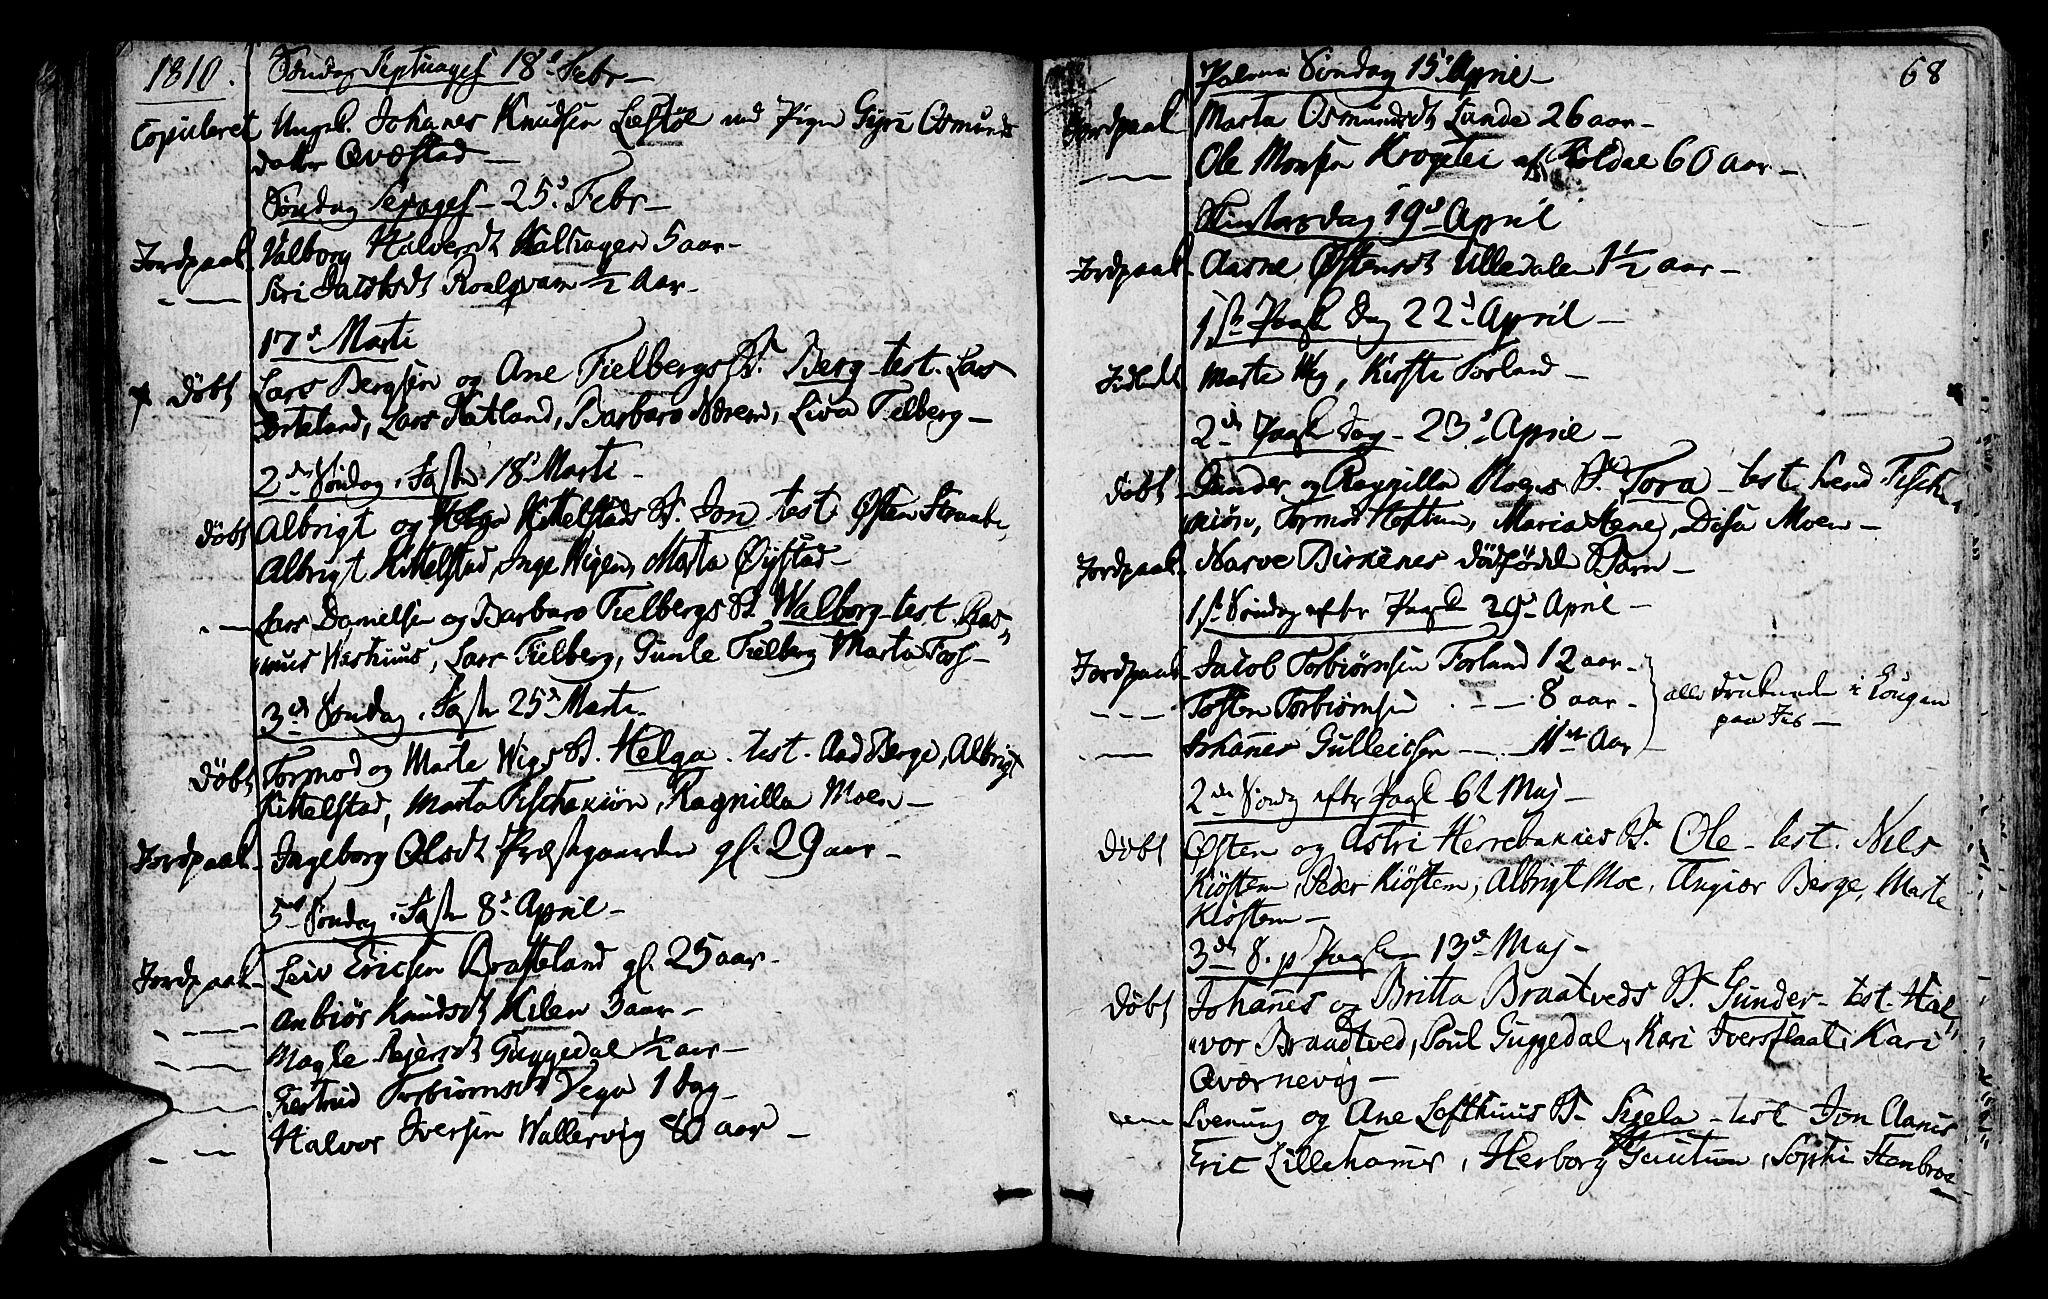 1810.
Søndag Septuages 18d Febr
Copuleret Ungk. Johanes Knudsen Læstøl med Pigen Gyri Osmunds
datter Qvæstad
Søndag Sexages 25d Febr
Jordpaak. Valborg Halversdt Kaltragen 5 aar
Siri Jacobsdt Roalqvam ½ Aar
17d Marti
Døbt Lars Bergsen og Ane Fielbergs B. Berg test. Lars
Lars Ratland, Barbaro Norem, Liva Fielberg
2den Søndag i Faste 18d Marti
Døbt Albrigt og Helga Kittelstads B. Jon test. Østen Straabe,
Albrigt Kittelstad, Inge Wigen, Marta Øystad
Lars Danielsen og Barbaro Fielbergs B. Walborg test. Ras
mus Hashuus, Lars Fielberg, Gunle Fielberg Marta Foss
3d Søndag i Faste 25d Marti
Døbt Tormod og Marte Wigs B. Helga. test. Aad Berge, Albrigt
Kittelstad, Marta Fischekiøn, Ragnilla Moen
Jordpaak. Ingeborg Olsdt Præstegaarden gl. 29 aar
5te Søndag i Faste 8d April
Jordpaak. Leiv Ericsen Bratteland gl. 25 aar
Anbiør Knudsdt Kilen 3 aar
Magle Guggedal ½ aar
Gertrud Torbiørnsdt Vega 1 dag
Halvor Iversen Wallervig 80 aar
68
Palme Søndag 15d April
Jordpaak Marta Osmundsdt Lunde 26 aar
Ole Monsen af 60 aar
Skiertorsdag 19d April
Jordpaak. Aasne Østensdt Ulledalen 1½ aar
1ste Paaske Dag 22d April
Indledt Marte Wig, Kirste Forland
2den Paaske dag 23d April
Døbt Gunder og Ragnilla Moens B. Tora test. hend Fische
kiøn, Tormod Neftun, Maria Hene, Disa Moen
Jordpaak. Narve Birkenes dødfødde Barn
1ste Søndag efter Paaske 29d April
Jordpaak Jacob Torbiørnsen Forland 12 aar
Tosten Torbiørnsen 8 aar alle druknede i Lougen
paa Iis
Johannes Gulleicsen 11 Aar
2den Søndg efter Paaske 6t Maj
Døbt Østen og Astri Herrebaknes B. Ole test. Nils
Kiøstem, Peder Kiøstem, Albrigt Moe, Angiær Berge, Marte
Kiøstem
3de S. p Paaske 13d Maj
Døbt Johannes og Britta Braatveds B. Gunder test. Hal
vor Braadtved, Poul Guggedal, Kari Iversflaat, Kari
Qværnevig
Svenung og Ane Lofthuus B. Sigela test Jon Aanes
Eric Lillehamer, Herborg Guutun, Sophi Stenbroe